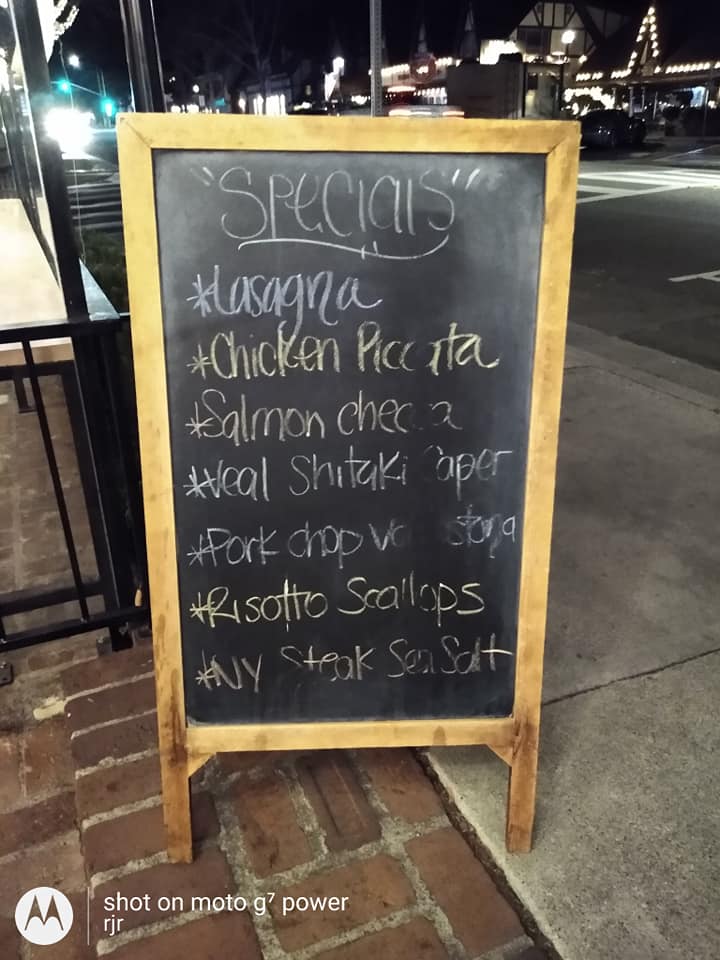 "Specials"
*Lasagna
*Chicken Piccata
*Salmon
*Veal Shitaki Caper
*Pork chop
*Risotto Scallops
*NY Steak Sea Salt
shot on moto g⁷ power
rjr